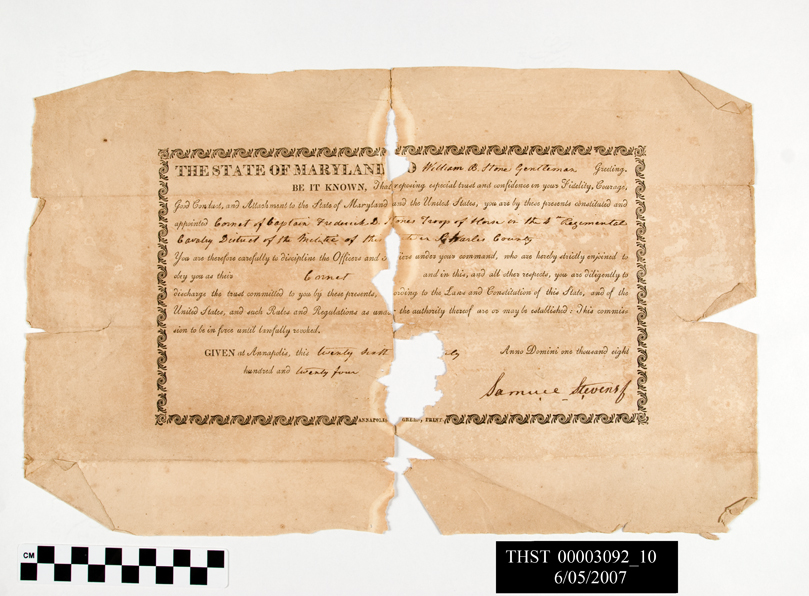 THE STATE OF MARYLAND William B. Stone Gentleman Greeting.
BE IT KNOWN, That reposing especial trust and confidence in your Fidelity, Courage,
Good Conduct, and Attachment to the State of Maryland and the United States, you are by these presents constituted and
appointed Cornet of Captain Frederick D. Stones Troop of Horse in the Regimental
Cavalry District of the Militia of the Charles County
You are therefore carefully to discipline the Officers and under your command, who are hereby strictly enjoined to
obey you as their Cornet and in this, and all other respects, you are diligently to
discharge the trust committed to you by these presents, to the Laws and Constitution of this State, and of the
United States, and such Rules and Regulations as under the authority thereof are or may be established: This commis-
sion to be in force until lawfully revoked.
GIVEN at Annapolis, this twenty Anno Domini one thousand eight
hundred and twenty four
Samuel Stevens
ANNAPOLIS PRINT.
CM
THST 00003092_10
6/05/2007